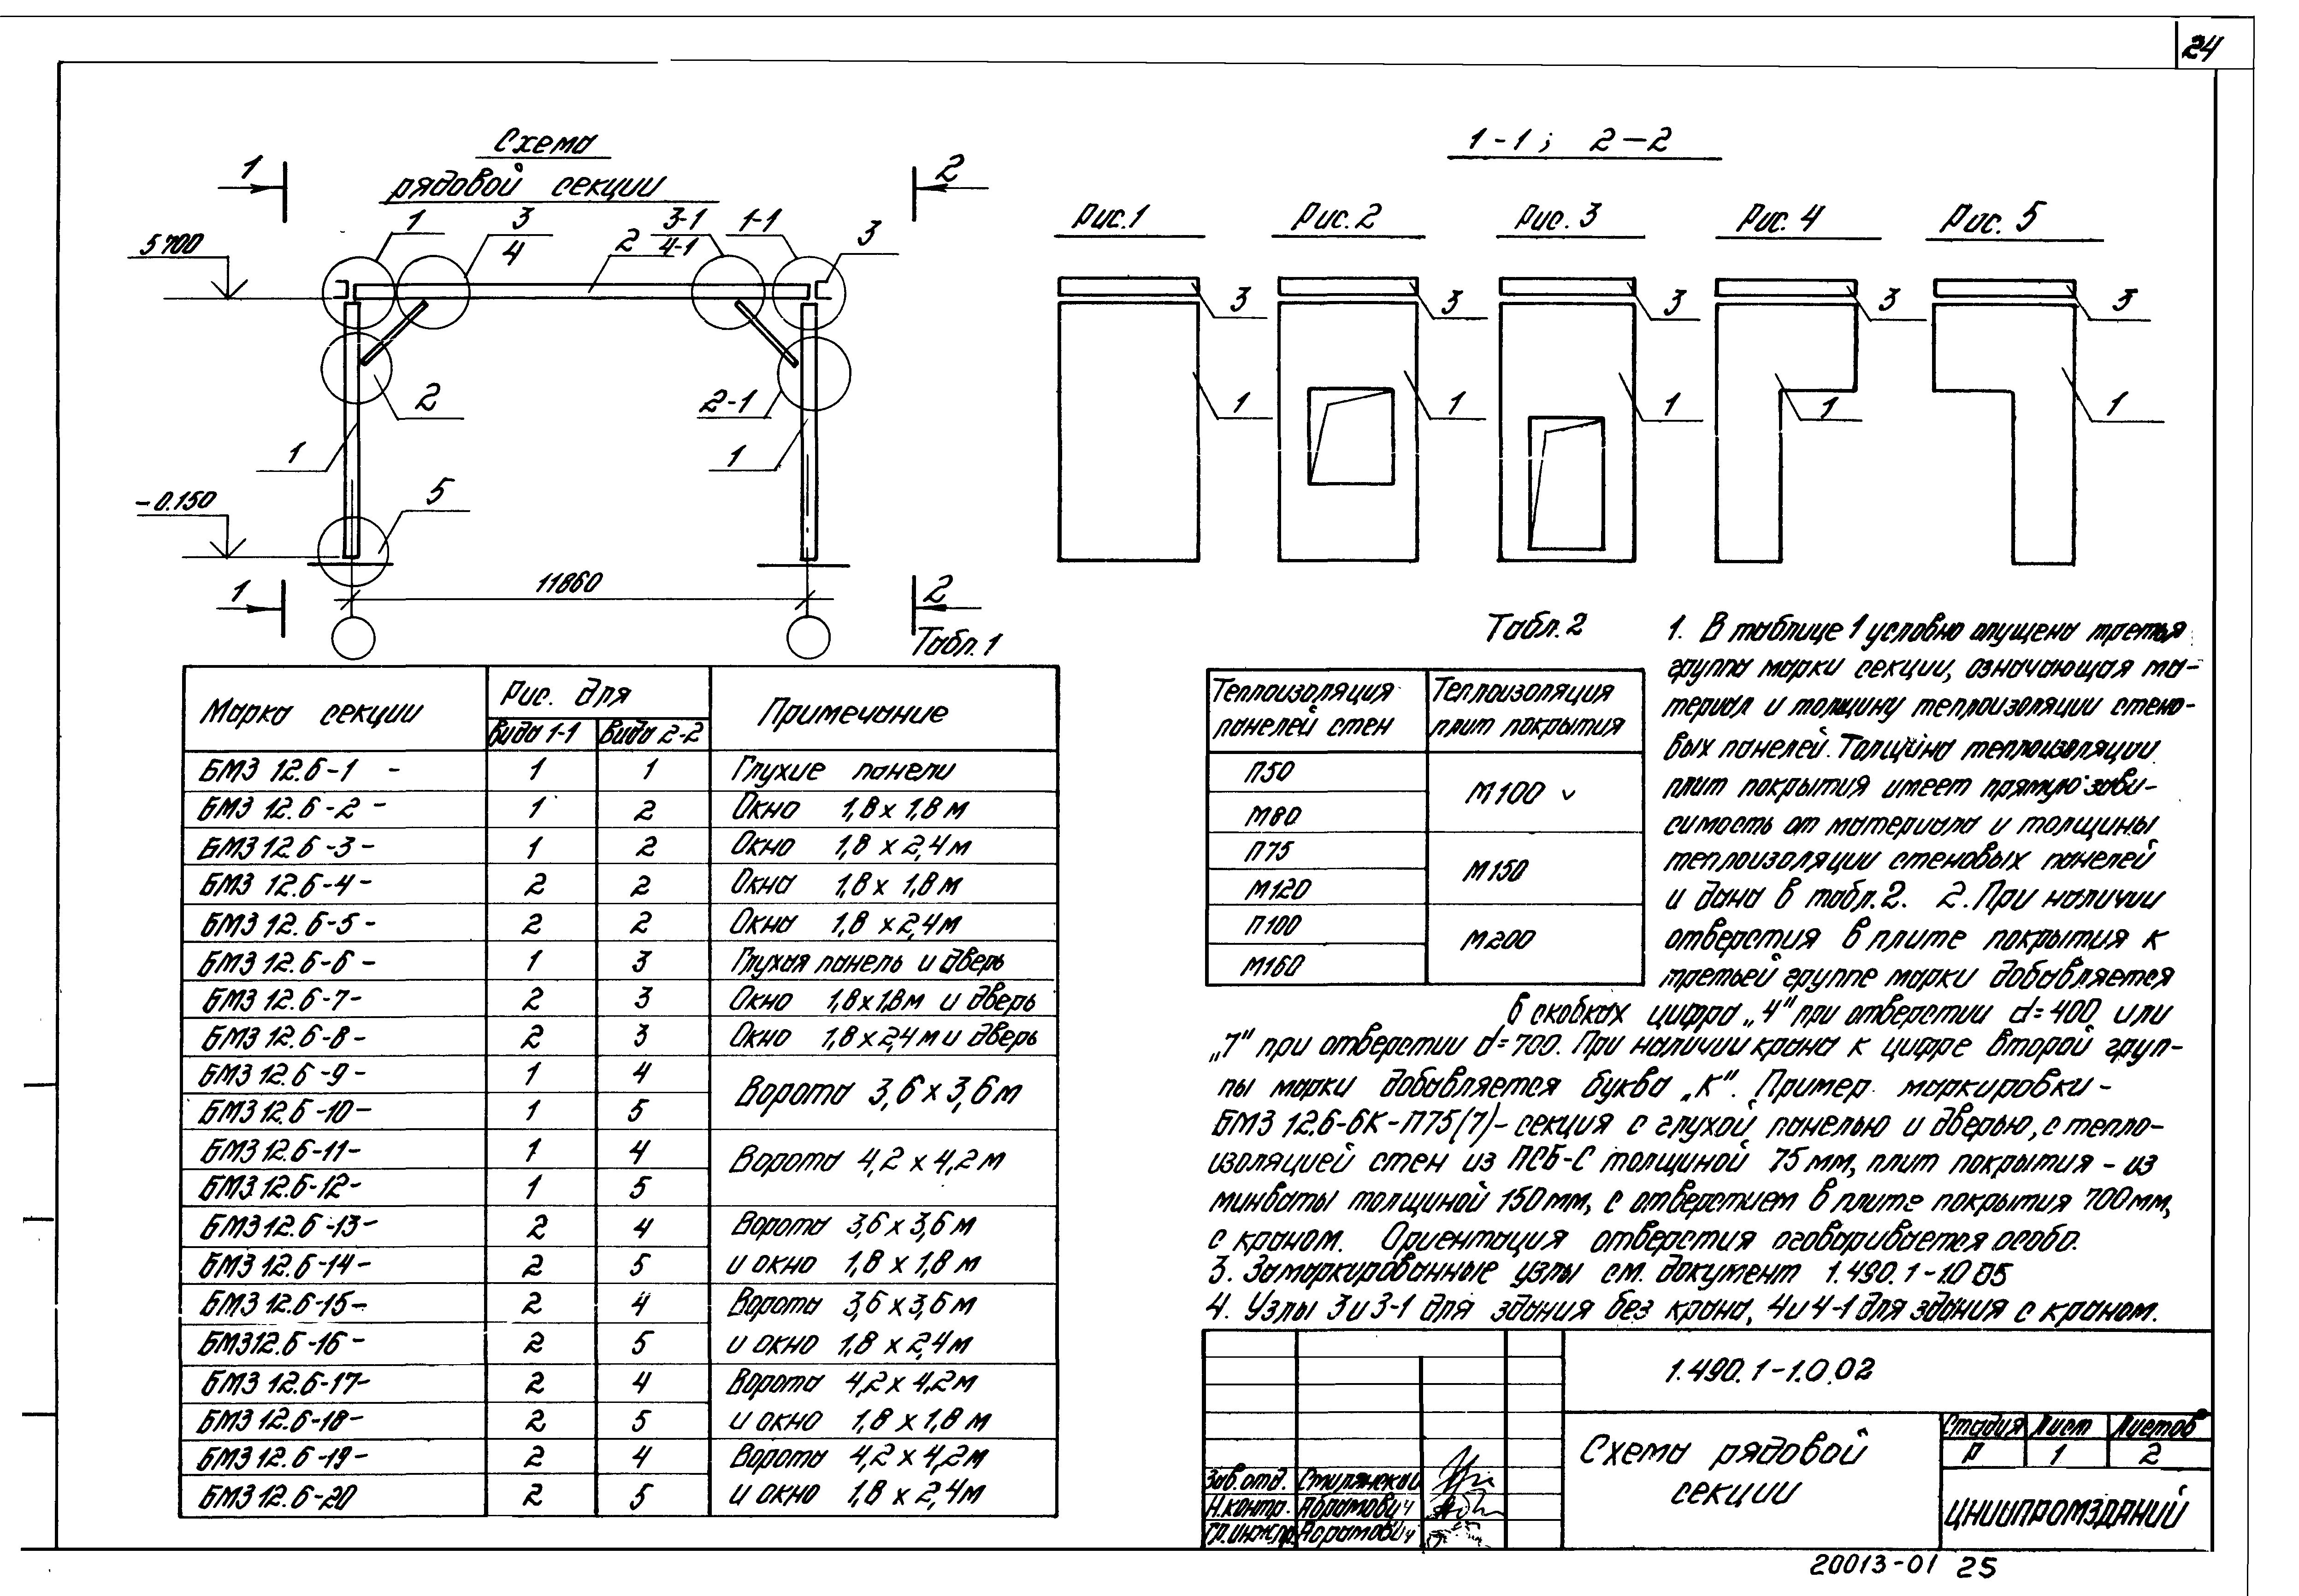 24
Схема
рядовой секции
1
2
1
3
4
2
3-1
4-1
1-1
3
5700
2
2-1
1
1
-0.150
5
1
11860
2
1-1; 2-2
Рис.1
Рис.2
Рис. 3
Рис. 4
Рис. 5
3
3
3
3
3
1
1
1
1
1
Табл.1
Марка секции
Рис. для
Примечание
вида 1-1
вида 2-2
БМЗ 12.6-1 - 1 1 Глухие панели
БМЗ 12.6-2- 1 2 Окно 1,8 х 1,8 м
БМЗ 12.6-3- 1 2 Окно 1,8 х 2,4 м
БМЗ 12.6-4- 2 2 Окна 1,8 х 1,8 м
БМЗ 12.6-5- 2 2 Окна 1,8 х 2,4 м
БМЗ 12.6-6- 1 3 Глухая панель и дверь
БМЗ 12.6-7- 2 3 Окно 1,8 х 1,8 м и дверь
БМЗ 12.6-8- 2 3 Окно 1,8 х 2,4 м и дверь
БМЗ 12.6-9- 1 4
Ворота 3,6 х 3,6 м
БМЗ 12.6-10- 1 5
БМЗ 12.6-11- 1 4
Ворота 4,2 х 4,2 м
БМЗ 12.6-12- 1 5
БМЗ 12.6-13- 2 4 Ворота 3,6 х 3,6 м
БМЗ 12.6-14- 2 5 и окно 1,8 х 1,8 м
БМЗ 12.6-15- 2 4 Ворота 3,6 х 3,6 м
БМЗ 12.6-16- 2 5 и окно 1,8 х 2,4 м
БМЗ 12.6-17- 2 4 Ворота 4,2 х 4,2 м
БМЗ 12.6-18- 2 5 и окно 1,8 х 1,8 м
БМЗ 12.6-19- 2 4 Ворота 4,2 х 4,2 м
БМЗ 12.6-20 2 5 и окно 1,8 х 2,4 м
Табл.2
Теплоизоляция панелей стен
Теплоизоляция плит покрытия
П50
М100
М80
П75
М150
М120
П100
М200
М160
1. В таблице 1 условно опущена третья
группа марки секции, означающая ма-
териал и толщину теплоизоляции стено-
вых панелей. Толщина теплоизоляции
плит покрытия имеет прямую зави-
симость от материала и толщины
теплоизоляции стеновых панелей
и дана в табл.2. 2. При наличии
отверстия в плите покрытия к
третьей группе марки добавляется
в скобках цифра „4" при отверстии d=400 или
„7" при отверстии d=700. При наличии крана к цифре второй груп-
пы марки добавляется буква „К". Пример маркировки-
БМЗ 12.6-6К-П75(7)- секция с глухой панелью и дверью, с тепло-
изоляцией стен из ПСБ-С толщиной 75 мм, плит покрытия - из
минваты толщиной 150 мм, с отверстием в плите покрытия 700 мм,
с краном. Ориентация отверстия оговаривается особо.
3. Замаркированные узлы см. документ 1.490.1-1.0 05
4. Узлы 3 и 3-1 для здания без крана, 4 и 4-1 для здания с краном.
1.490.1-1.0.02
Схема рядовой
секции
Стадия Лист Листов
Р 1 2
ЦНИИПРОМЗДАНИЙ
Зав.отд.
Н.контр. Абрамович
Абрамович
20013-01 25